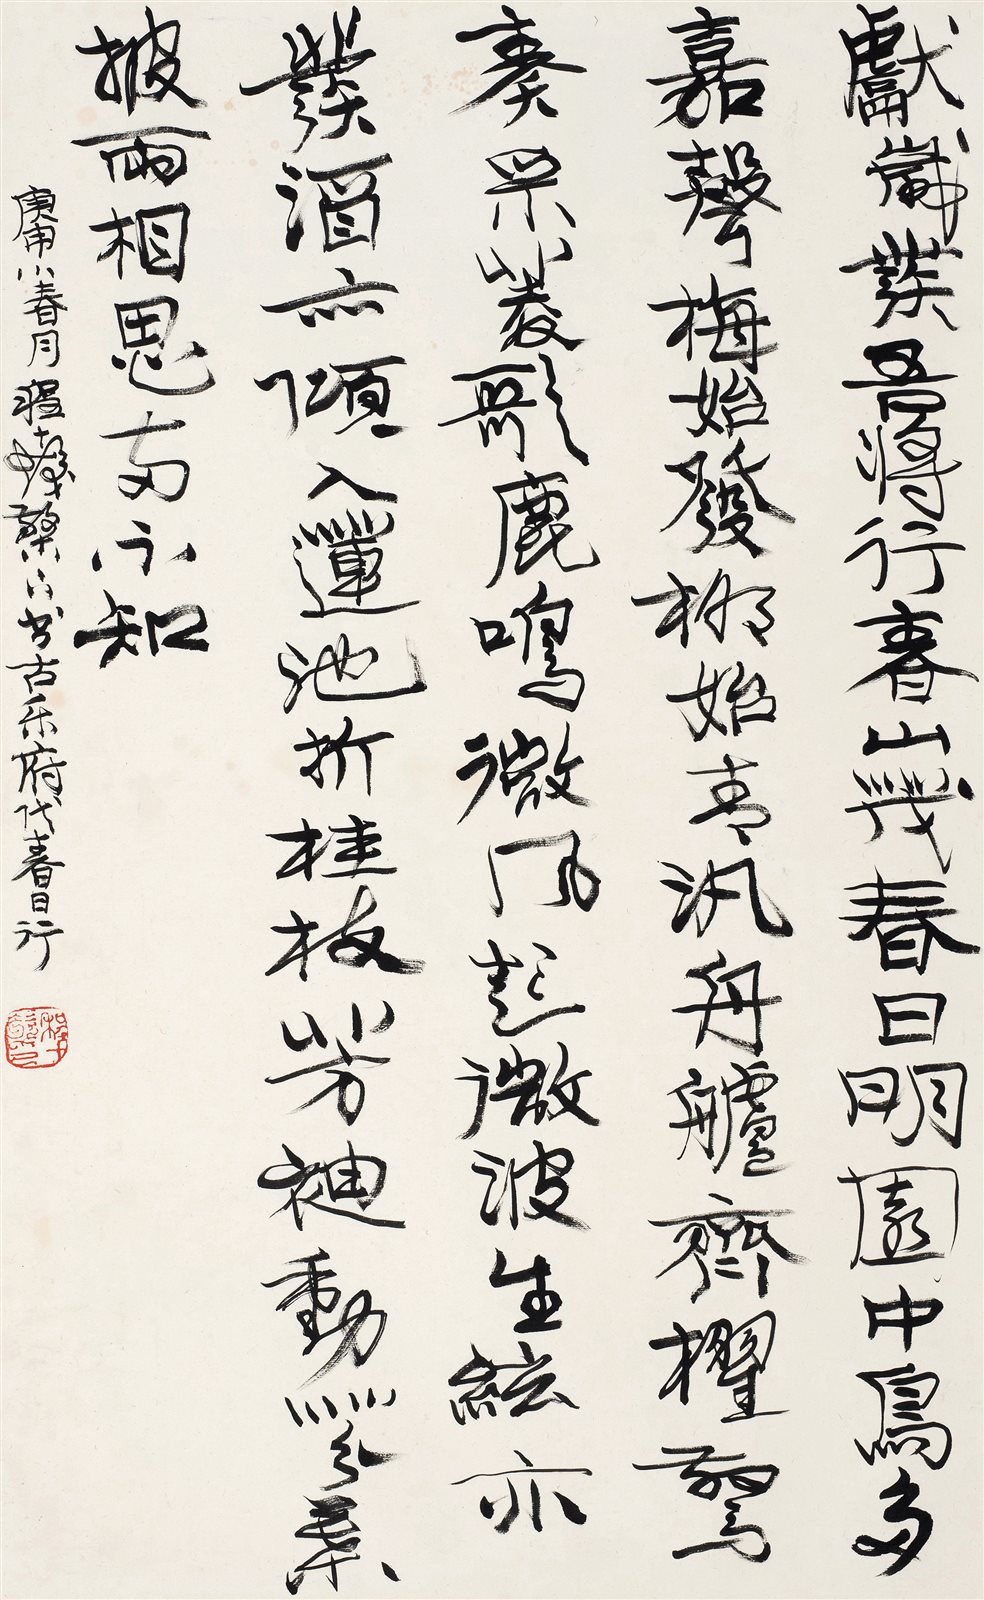 獻歲發吾將行春山茂春日明園中鳥多
嘉聲梅始發柳始青汎舟艫齊櫂驚
奏采菱歌鹿鳴微風起微波生絃亦
發酒亦傾入蓮池折桂枝芳袖動芬葉
披兩相思兩不知
庚申小春月書古乐府代春日行